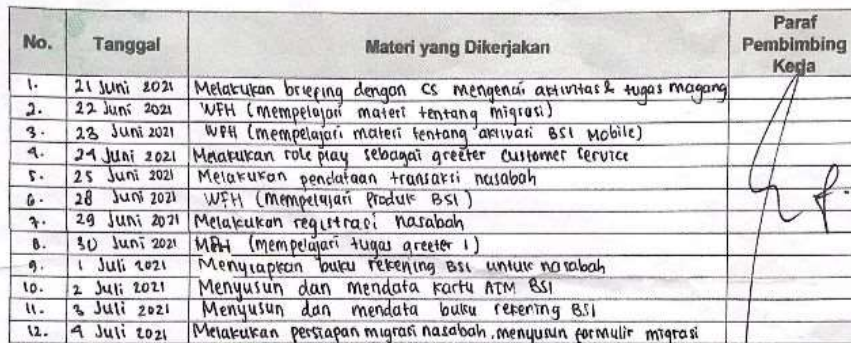 No. Tanggal Materi yang Dikerjakan Paraf Pembimbing Kerja
1. 21 Juni 2021 Melakukan briefing dengan CS mengenai aktivitas & tugas magang
2. 22 Juni 2021 WFH (mempelajari materi tentang migrasi)
3. 23 Juni 2021 WFH (mempelajari materi tentang aktivasi BSI Mobile)
4. 24 Juni 2021 Melakukan role play sebagai greeter customer service
5. 25 Juni 2021 Melakukan pendataan transaksi nasabah
6. 28 Juni 2021 WFH (mempelajari produk BSI)
7. 29 Juni 2021 Melakukan registrasi nasabah
8. 30 Juni 2021 WFH (mempelajari tugas greeter 1)
9. 1 Juli 2021 Menyiapkan buku rekening BSI untuk nasabah
10. 2 Juli 2021 Menyusun dan mendata kartu ATM BSI
11. 3 Juli 2021 Menyusun dan mendata buku rekening BSI
12. 4 Juli 2021 Melakukan persiapan migrasi nasabah, menyusun formulir migrasi